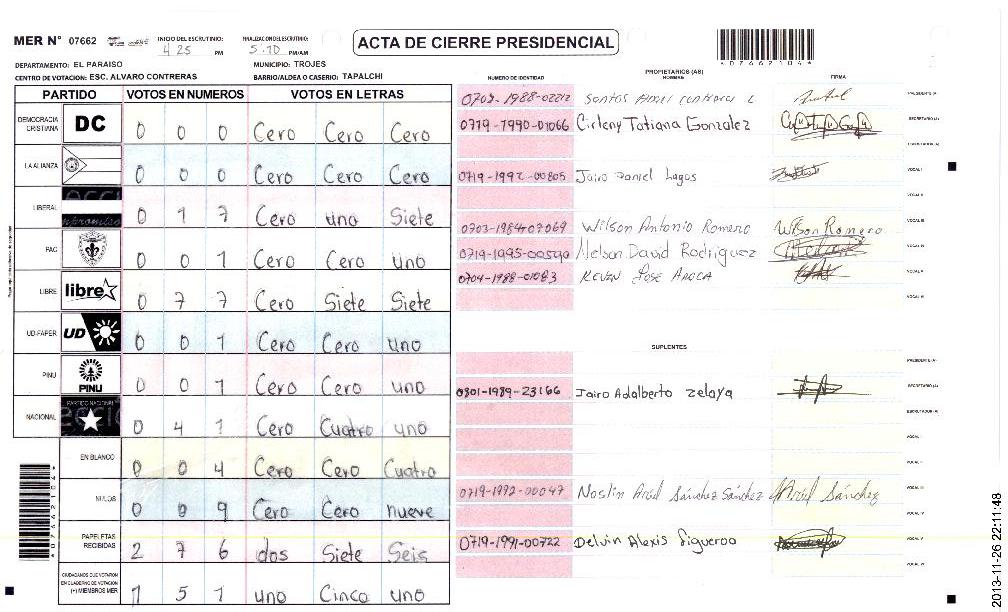 MER N° 07662 INICIO DEL ESCRUTINIO: 4 25 PM FINALIZACION DEL ESCRUTINIO: 5:10 PM/AM
ACTA DE CIERRE PRESIDENCIAL
4076621044
DEPARTAMENTO: EL PARAISO MUNICIPIO: TROJES
CENTRO DE VOTACION: ESC. ALVARO CONTRERAS BARRIO/ALDEA O CASERIO: TAPALCHI
PARTIDO VOTOS EN NUMEROS VOTOS EN LETRAS
DEMOCRACIA CRISTIANA DC 0 0 0 Cero Cero Cero
LA ALIANZA 0 0 0 Cero Cero Cero
LIBERAL 0 1 7 Cero uno Siete
PAC 0 0 1 Cero Cero uno
LIBRE libre 0 7 7 Cero Siete Siete
UD-FAPER UD 0 0 1 Cero Cero uno
PINU PINU 0 0 1 Cero Cero uno
NACIONAL PARTIDO NACIONAL 0 4 1 Cero Cuatro uno
EN BLANCO 0 0 4 Cero Cero Cuatro
NULOS 0 0 9 Cero Cero nueve
PAPELETAS RECIBIDAS 2 7 6 dos Siete Seis
CIUDADANOS QUE VOTARON EN CUADERNO DE VOTACION (+) MIEMBROS MER 1 5 1 uno Cinco uno
PROPIETARIOS (AS)
NUMERO DE IDENTIDAD NOMBRE FIRMA
0703-1988-02212 Santos
PRESIDENTE (A)
0719-1990-01066 Cirleny Tatiana Gonzalez
SECRETARIO (A)
ESCRUTADOR (A)
0719-1992-00805 Jairo Daniel Lagos
VOCAL I
VOCAL II
0703-1984-07069 Wilson Antonio Romero Wilson Romero
VOCAL III
0719-1995-00590 Nelson David Rodriguez
VOCAL IV
0704-1988-01083 KEVEN JOSE
VOCAL V
VOCAL VI
SUPLENTES
PRESIDENTE (A)
0801-1989-23166 Jairo Adalberto Zelaya
SECRETARIO (A)
ESCRUTADOR (A)
VOCAL I
VOCAL II
0719-1992-00047 Noslin Ariel Sánchez Sánchez Ariel Sánchez
VOCAL III
VOCAL IV
0719-1991-00722 Delvin Alexis Figueroa
VOCAL V
VOCAL VI
2013-11-26 22:11:48